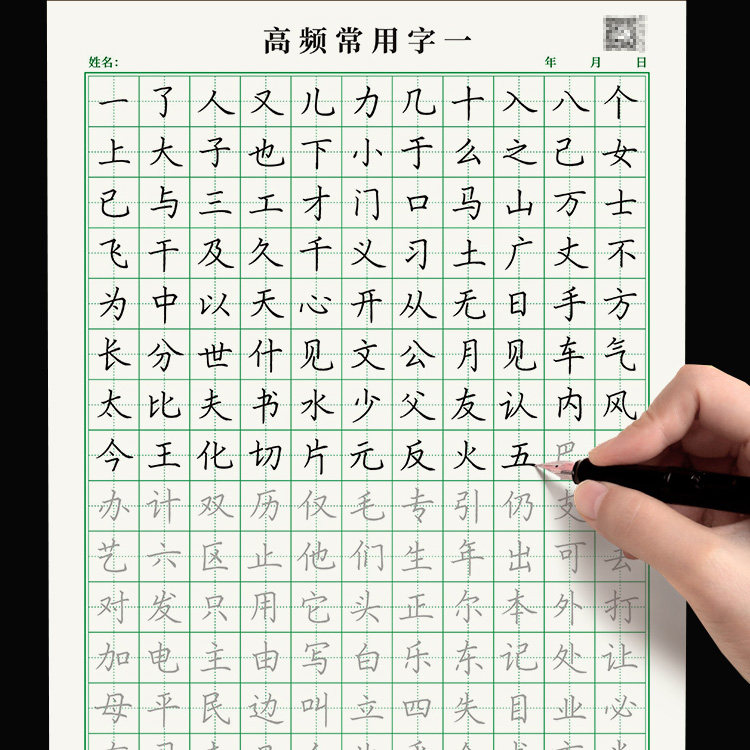 高频常用字一
姓名: 年 月 日
一了人又儿力几十入八个
上大子也下小于么之己女
已与三工才门口马山万士
飞干及久千义习土广丈不
为中以天心开从无日手方
长分世什见文公月见车气
太比夫书水少父友认内风
今王化切片元反火五巴
办计双历仅毛专引仍支
艺六区止他们生年出可去
对发只用它头正尔本外打
加电主由写白乐东记处让
母平民边叫立四失目业必